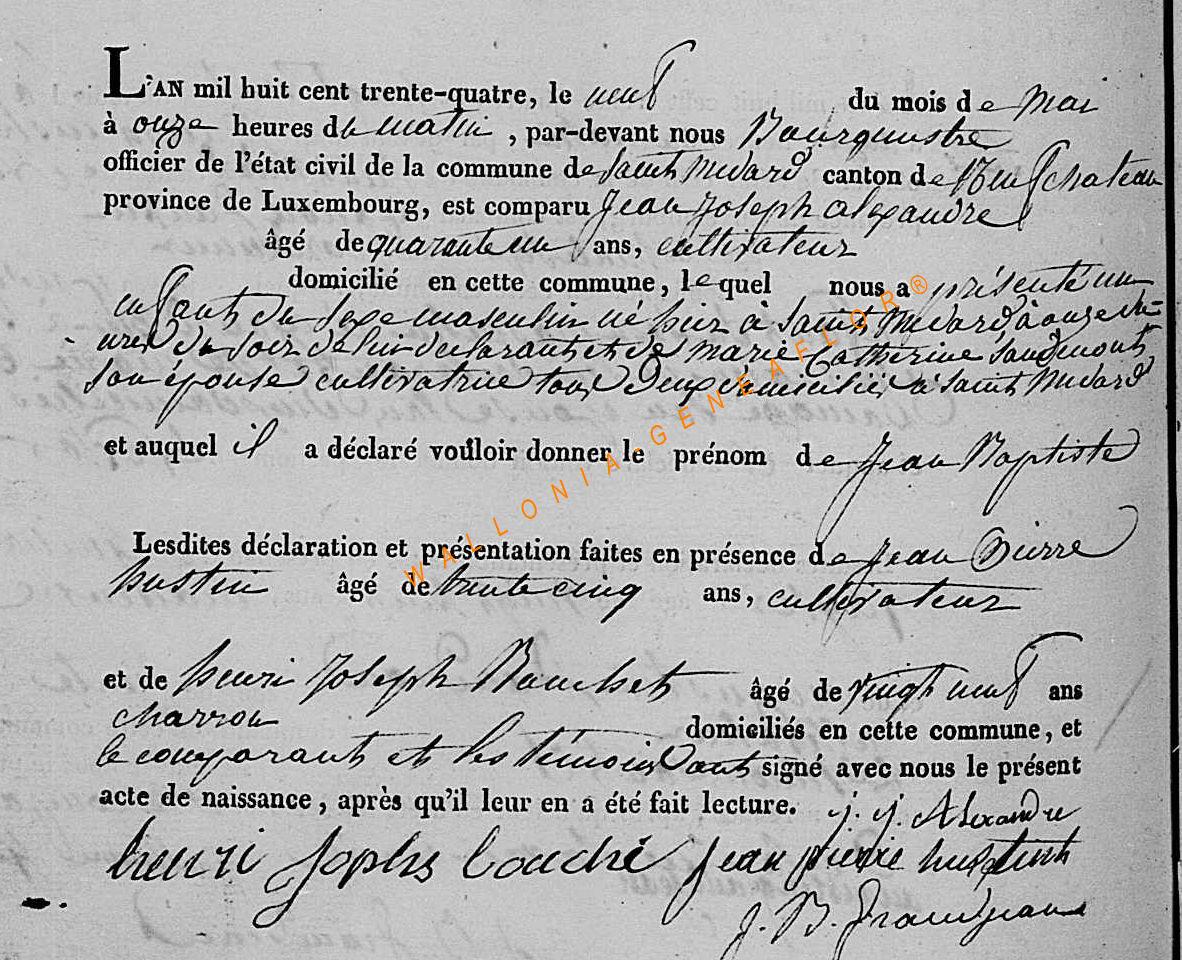 L'AN mil huit cent trente-quatre, le neuf du mois de Mai
à onze heures du matin, par-devant nous Bourguestre
officier de l'état civil de la commune de Saint Medard canton de Neufchateau
province de Luxembourg, est comparu Jean Joseph alexandre
âgé de quarante un ans, cultivateur
domicilié en cette commune, lequel nous a présenté un
enfant du sexe masculin né hier à Saint Medard à onze he=
ures du soir de lui declarant et de Marie Catherine
son épouse cultivatrice tous deux domiciliés à Saint Medard
et auquel il a déclaré vouloir donner le prénom de Jean Baptiste
Lesdites déclaration et présentation faites en présence de Jean Pierre
hustin âgé de trente cinq ans, cultivateur
et de henri Joseph âgé de vingt neuf ans
charron domiciliés en cette commune, et
le comparant et les témoins ont signé avec nous le présent
acte de naissance, après qu'il leur en a été fait lecture. j. j. Alexandre
henri Jophs bouché jean pierre hustint
J. B. Grandjean
WALLONIA-GENEAFLOR®